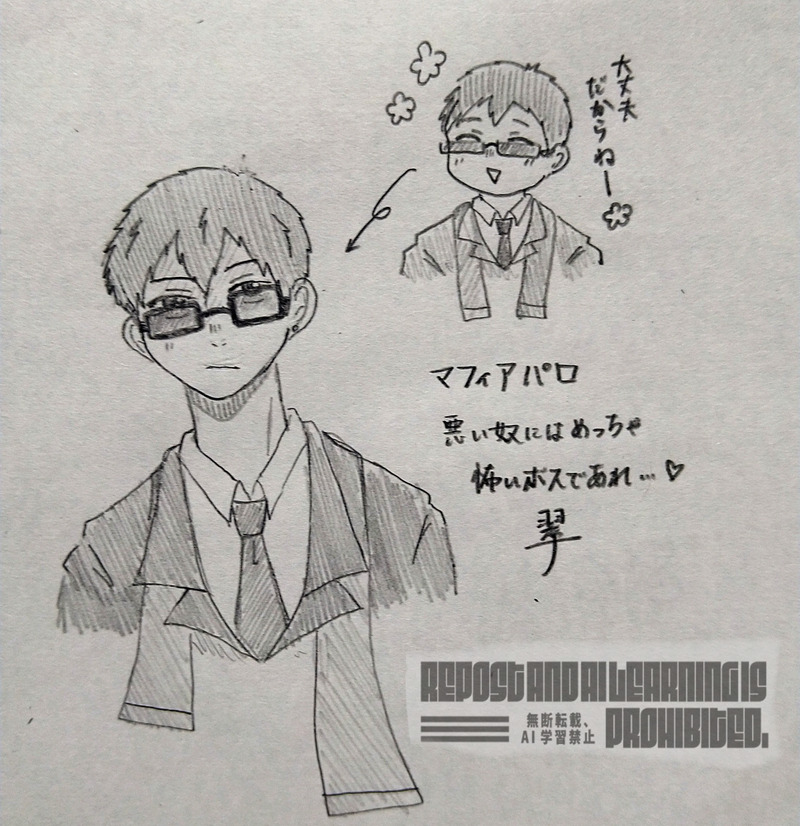 大丈夫
だからねー
マフィアパロ
悪い奴にはめっちゃ
怖いボスであれ…♡
翠
REPOST AND AI LEARNING IS
無断転載、
AI学習禁止
PROHIBITED.